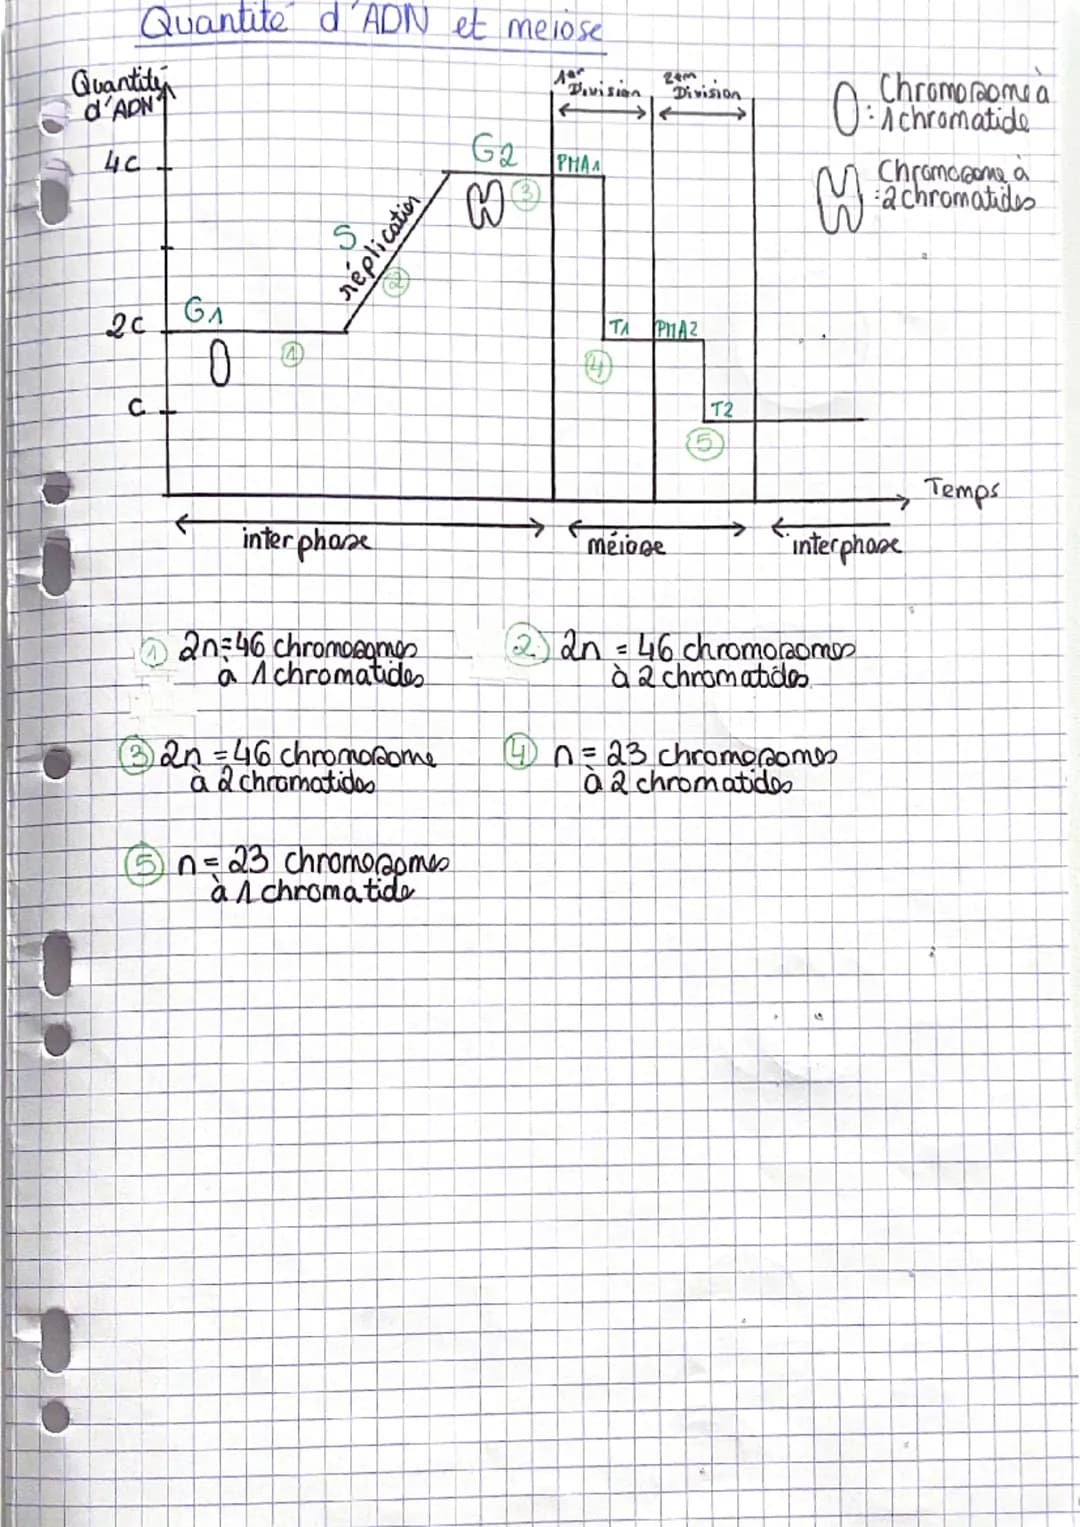 Quantité d'ADN et meiose
Quantité
d'ADN
4c
2c
c
1er
Division
2em
Division
G1
S
réplication
G2
PMA1
T1
PMA2
T2
1
2
3
4
5
0 : Chromosome à
1 chromatide
Chromosome à
: 2 chromatides
Temps
interphase
méiose
interphase
1 2n=46 chromosomes
à 1 chromatides
2 2n = 46 chromosomes
à 2 chromatides
3 2n = 46 chromosome
à 2 chromatides
4 n = 23 chromosomes
à 2 chromatides
5 n = 23 chromosomes
à 1 chromatide